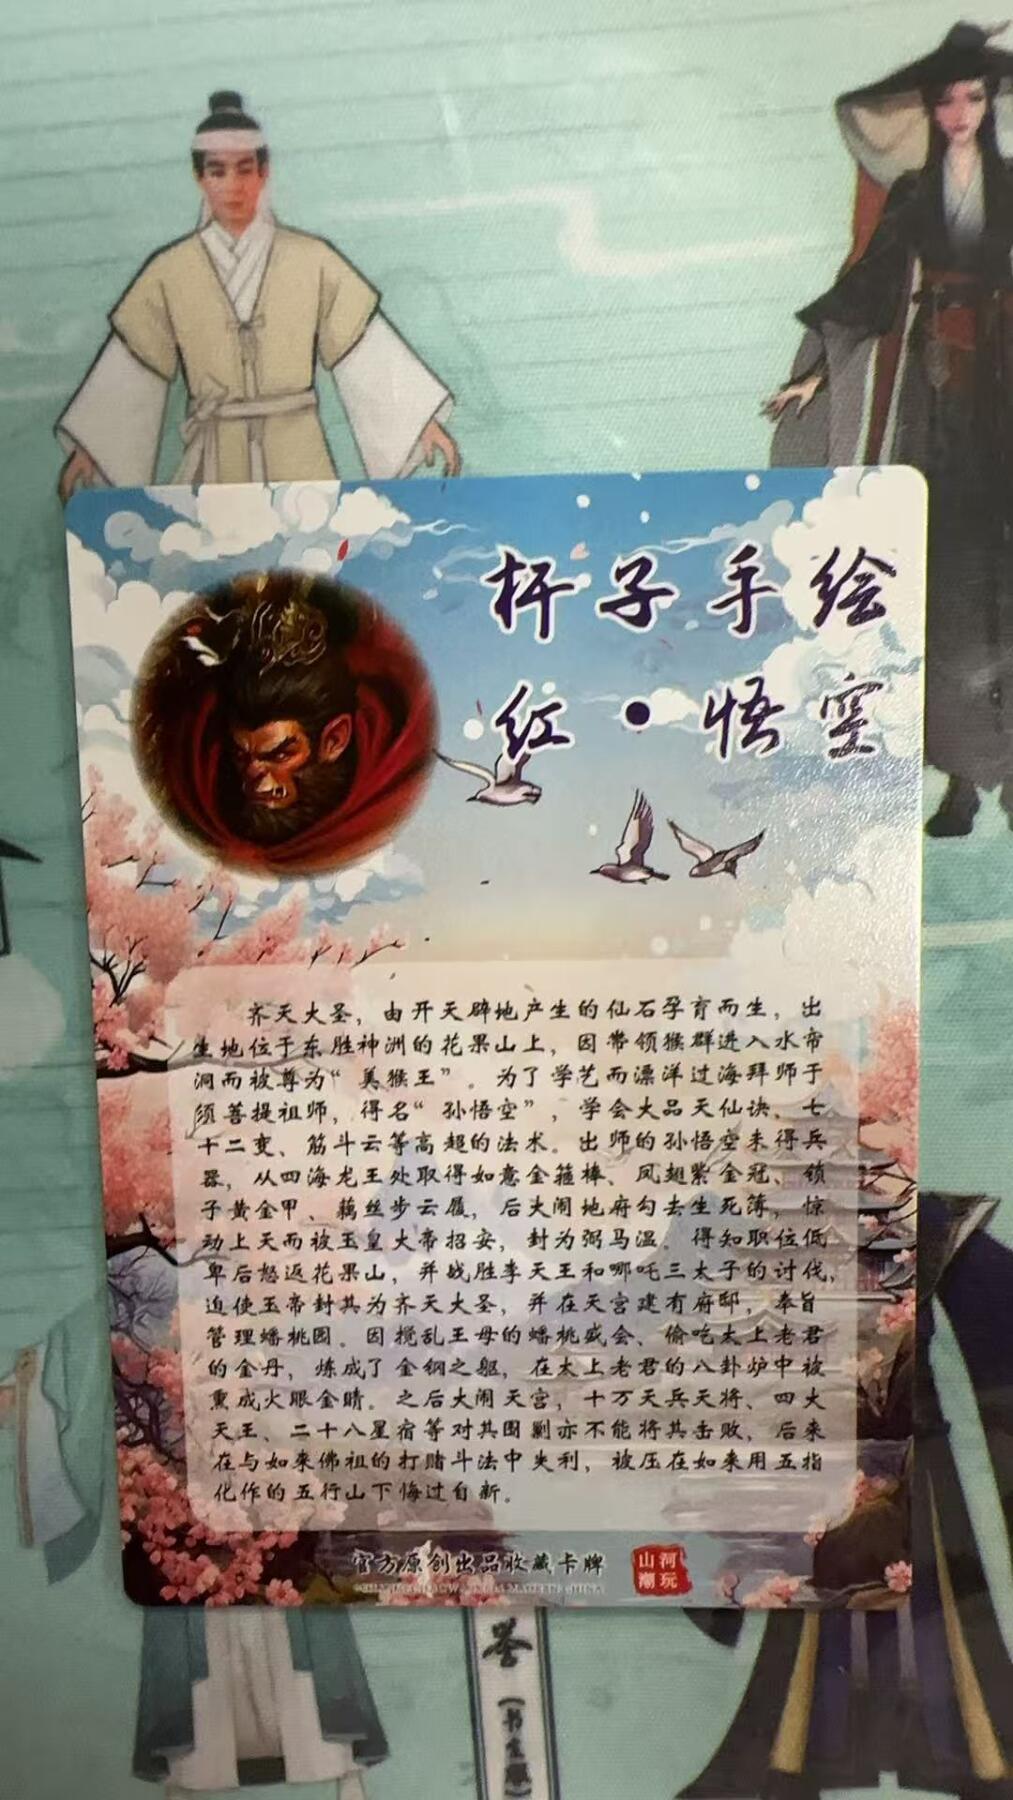 杆子手绘
红·悟空
齐天大圣，由开天辟地产生的仙石孕育而生，出
生地位于东胜神洲的花果山上，因带领猴群进入水帘
洞而被尊为“美猴王”。为了学艺而漂洋过海拜师于
须菩提祖师，得名“孙悟空”，学会大品天仙诀、七
十二变、筋斗云等高超的法术。出师的孙悟空未得兵
器，从四海龙王处取得如意金箍棒、凤翅紫金冠、锁
子黄金甲、藕丝步云履，后大闹地府勾去生死簿，惊
动上天而被玉皇大帝招安，封为弼马温。得知职位低
卑后怒返花果山，并战胜李天王和哪吒三太子的讨伐，
迫使玉帝封其为齐天大圣，并在天宫建有府邸，奉旨
管理蟠桃园。因搅乱王母的蟠桃盛会、偷吃太上老君
的金丹，炼成了金钢之躯，在太上老君的八卦炉中被
熏成火眼金睛。之后大闹天宫，十万天兵天将、四大
天王、二十八星宿等对其围剿亦不能将其击败，后来
在与如来佛祖的打赌斗法中失利，被压在如来用五指
化作的五行山下悔过自新。
官方原创出品收藏卡牌
山河
潮玩